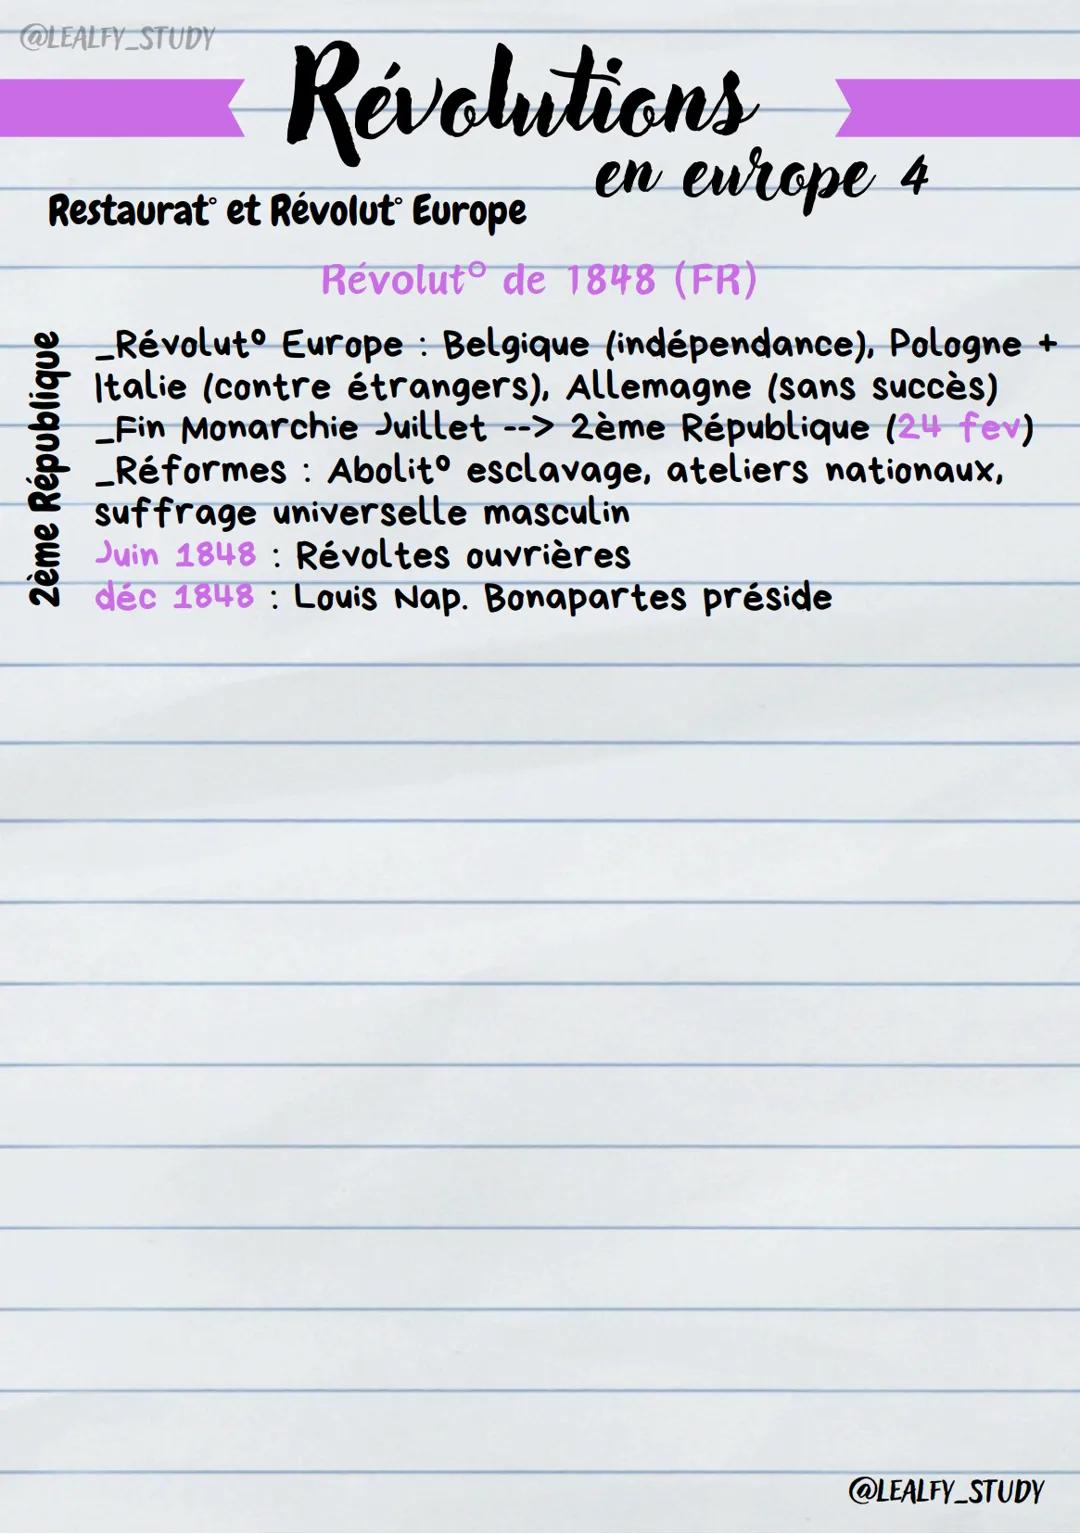 @LEALFY_STUDY
Révolutions
en europe 4
Restaurat° et Révolut° Europe
Révolut° de 1848 (FR)
2ème République
_Révolut° Europe : Belgique (indépendance), Pologne +
Italie (contre étrangers), Allemagne (sans succès)
_Fin Monarchie Juillet --> 2ème République (24 fev)
_Réformes : Abolit° esclavage, ateliers nationaux,
suffrage universelle masculin
Juin 1848 : Révoltes ouvrières
déc 1848 : Louis Nap. Bonapartes préside
@LEALFY_STUDY